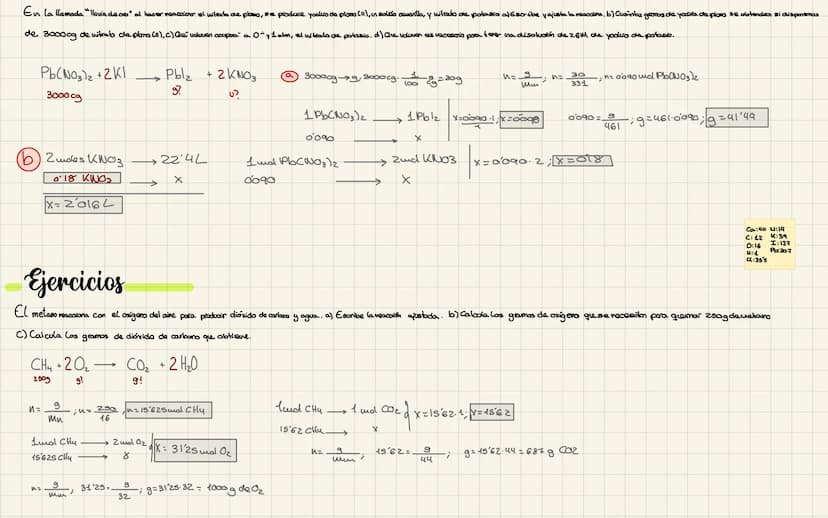 En la llamada "lluvia de oro" al hacer reaccionar el nitrato de plomo, se produce yoduro de plomo (II), un sólido amarillo, y nitrato de potasio a) Escribe y ajusta la reacción. b) Cuántos gramos de yoduro de plomo se obtendrán si disponemos
de 3000cg de nitrato de plomo (II), c) Que volumen ocupará a 0° y 1 atm, el nitrato de potasio. d) Que volumen es necesario para tener una disolución de 2,6M, de yoduro de potasio.
Pb(NO₃)₂ + 2KI → PbI₂ + 2KNO₃
3000cg g? v?
a 3000cg → g, 3000cg · 1/100 g = 30g n = g/Mm, n = 30/331, n = 0'090 mol Pb(NO₃)₂
1 Pb(NO₃)₂ → 1 PbI₂
0'090 → x
0'090 = g/461; g = 461·0'090; g = 41'49
b 2 moles KNO₃ → 22'4L
0'18 KNO₃ → x
x = 2'016L
1 mol Pb(NO₃)₂ → 2mol KNO3
0'090 → x
x = 0'090 · 2; x = 0'18
Ca:40 N:14
C:12 K:39
O:16 I:127
H:1 Pb:207
Cl:35'5
Ejercicios
El metano reacciona con el oxígeno del aire para producir dióxido de carbono y agua. a) Escribe la reacción ajustada. b) Calcula los gramos de oxígeno que se necesitan para quemar 250g de metano
c) Calcula los gramos de dióxido de carbono que obtiene.
CH₄ + 2O₂ → CO₂ + 2H₂O
250g g! g!
n = g/Mm; n = 250/16, n = 15'625 mol CH₄
1mol CH₄ → 2mol O₂
15'625 CH₄ → x
x = 31'25 mol O₂
n = g/Mm, 31'25 = g/32; g = 31'25·32 = 1000 g de O₂
1mol CH₄ → 1 mol CO₂
15'62 CH₄ → x
x = 15'62·1, x = 15'62
n = g/Mm, 15'62 = g/44; g = 15'62·44 = 687 g CO2